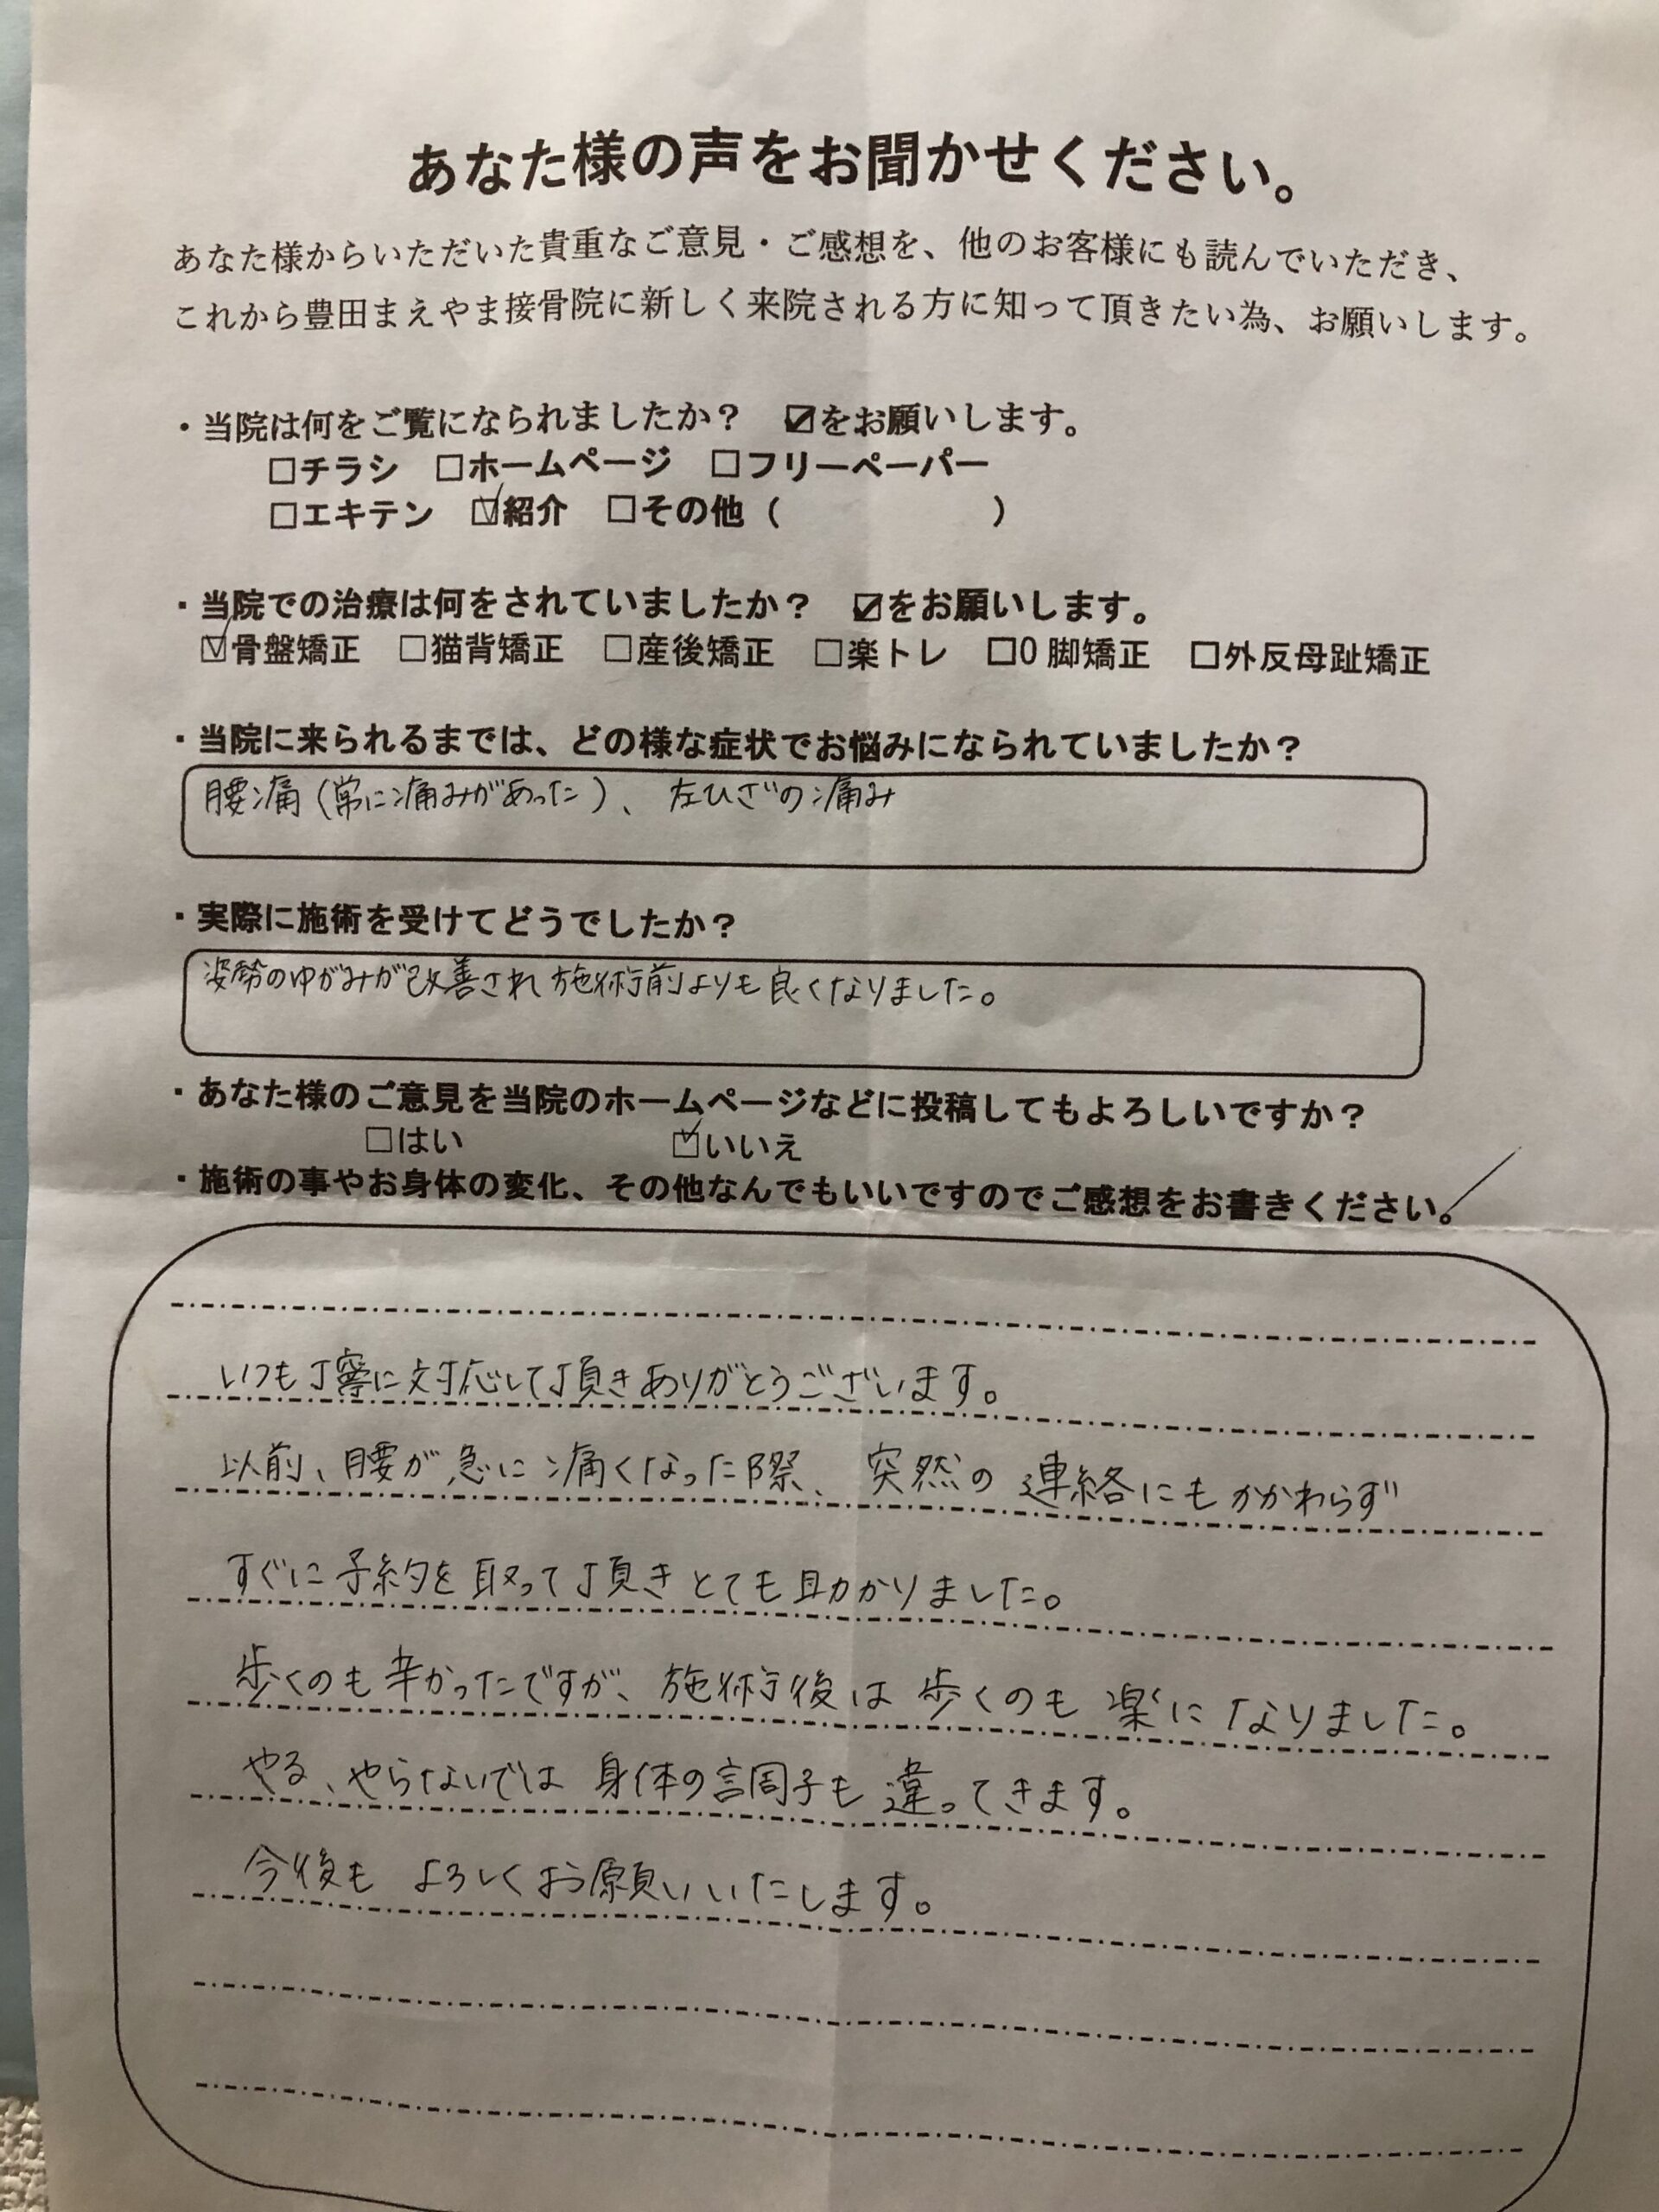 あなた様の声をお聞かせください。
あなた様からいただいた貴重なご意見・ご感想を、他のお客様にも読んでいただき、
これから豊田まえやま接骨院に新しく来院される方に知って頂きたい為、お願いします。
・当院は何をご覧になられましたか？ ☑をお願いします。
□チラシ □ホームページ □フリーペーパー
□エキテン ☑紹介 □その他（ ）
・当院での治療は何をされていましたか？ ☑をお願いします。
☑骨盤矯正 □猫背矯正 □産後矯正 □楽トレ □O脚矯正 □外反母趾矯正
・当院に来られるまでは、どの様な症状でお悩みになられていましたか？
腰痛（常に痛みがあった）、左ひざの痛み
・実際に施術を受けてどうでしたか？
姿勢のゆがみが改善され施術前よりも良くなりました。
・あなた様のご意見を当院のホームページなどに投稿してもよろしいですか？
□はい ☑いいえ
・施術の事やお身体の変化、その他なんでもいいですのでご感想をお書きください。
いつも丁寧に対応して頂きありがとうございます。
以前、腰が急に痛くなった際、突然の連絡にもかかわらず
すぐに予約を取って頂きとても助かりました。
歩くのも辛かったですが、施術後は歩くのも楽になりました。
やる、やらないでは身体の調子も違ってきます。
今後もよろしくお願いいたします。